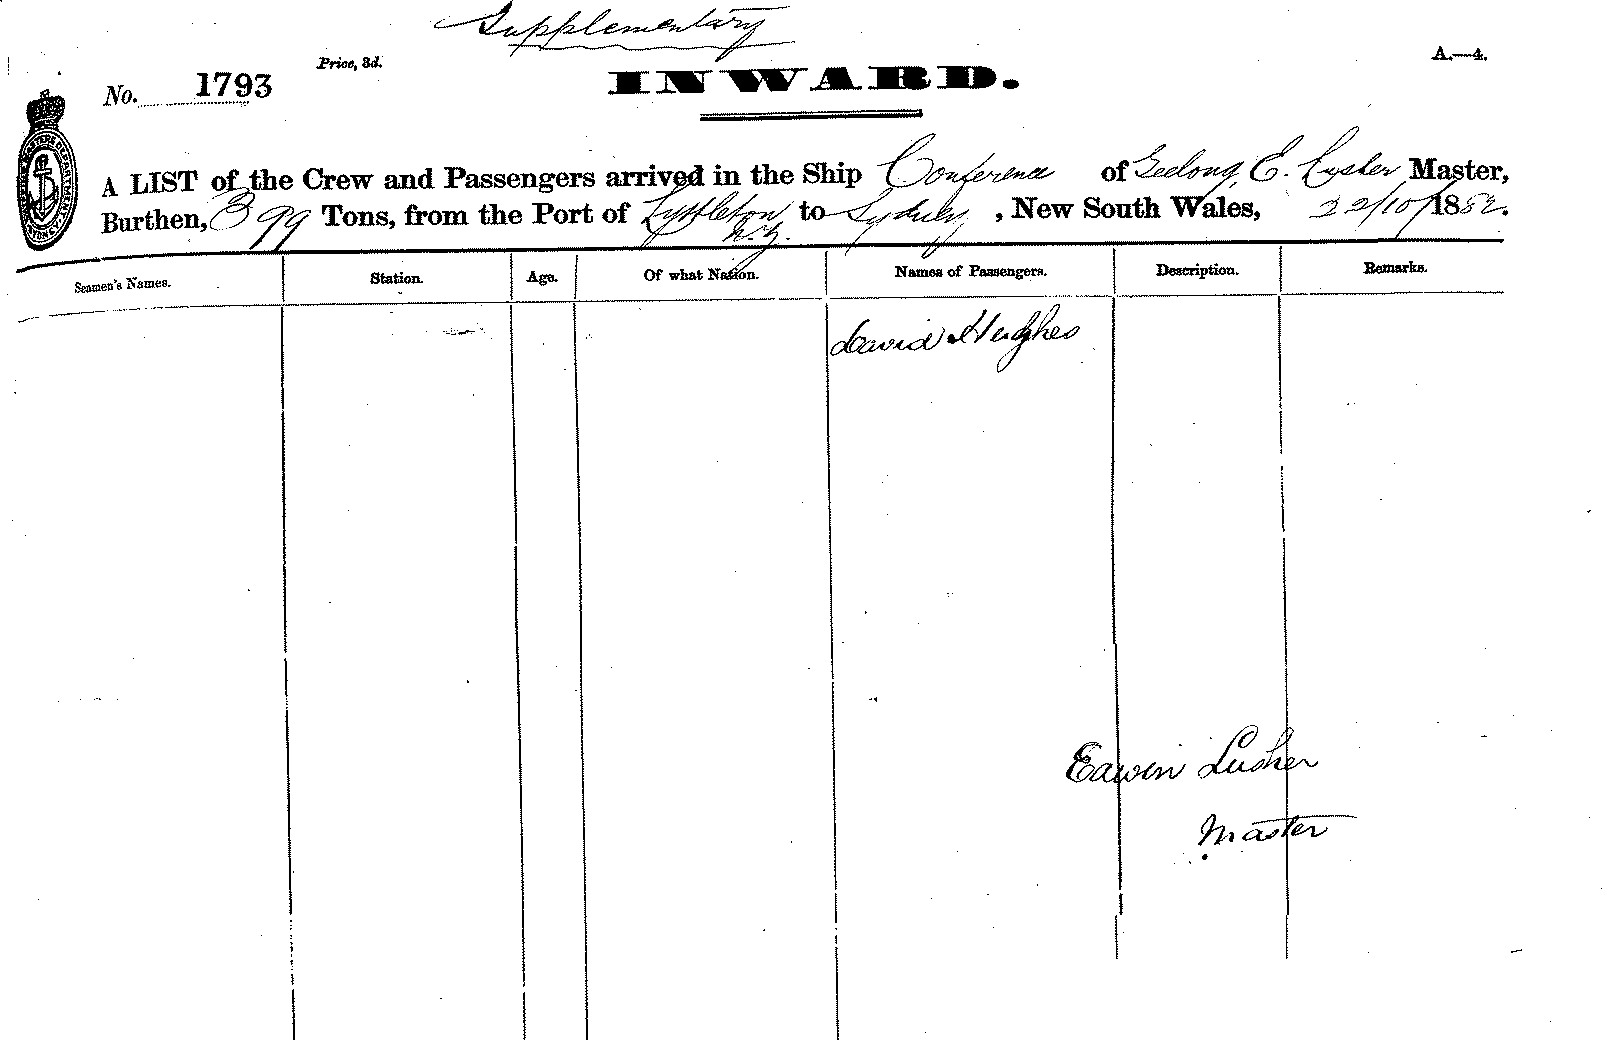 Supplementary
Price, 3d.
A.—4.
No. 1793
INWARD.
A LIST of the Crew and Passengers arrived in the Ship Conference of Geelong, E. Lusher Master,
Burthen, 399 Tons, from the Port of Lyttleton N.Z. to Sydney, New South Wales, 22/10/1882.
Seamen's Names. Station. Age. Of what Nation. Names of Passengers. Description. Remarks.
David Hughes
Edwin Lusher
Master